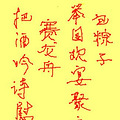 包粽子
举国晚宴聚
赛龙舟
把酒吟诗慰